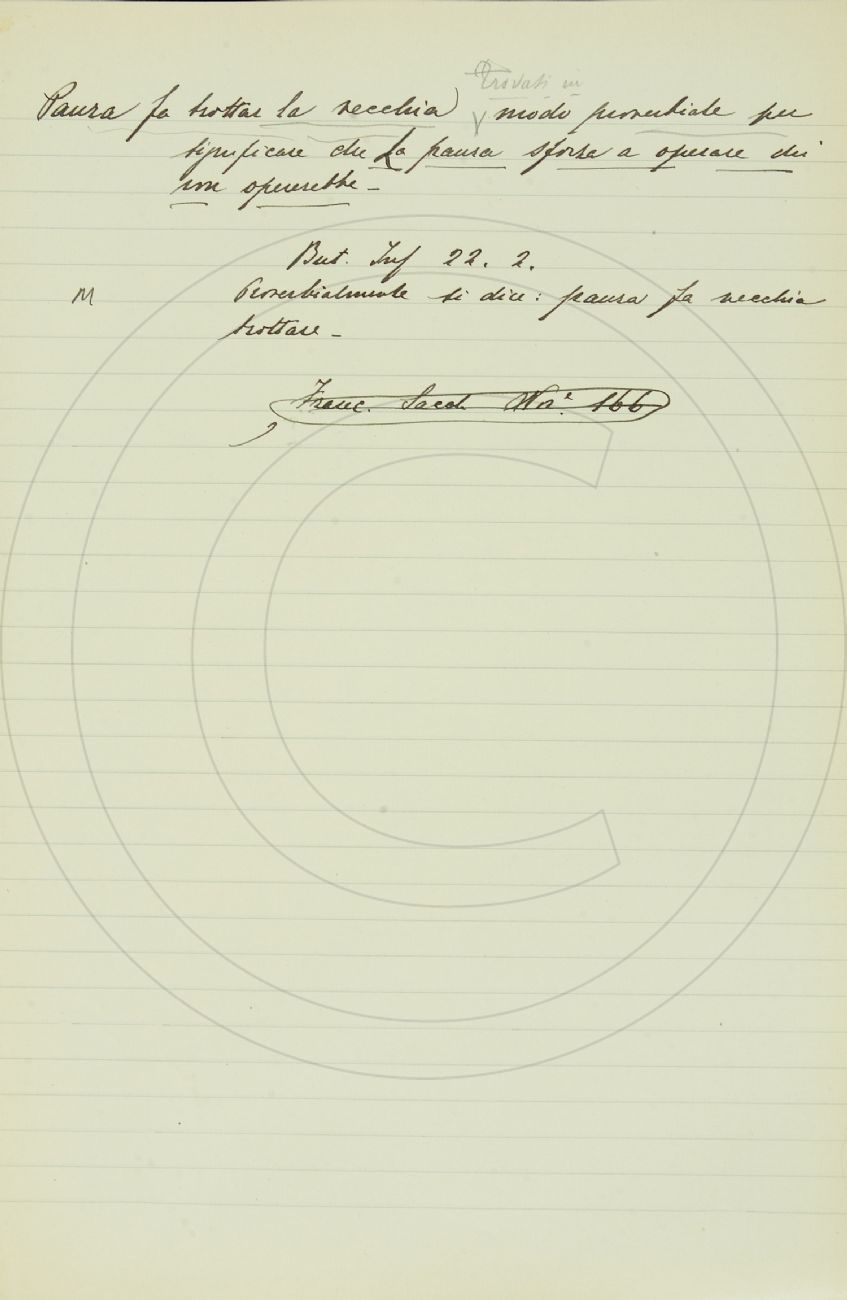 Trovasi in
Paura fa trottar la vecchia) modo proverbiale per
significare che La paura sforza a operare chi
non opererebbe –
But. Inf 22. 2.
M Proverbialmente si dice: paura fa vecchia
trottare –
Franc. Sacch. Nov. 166